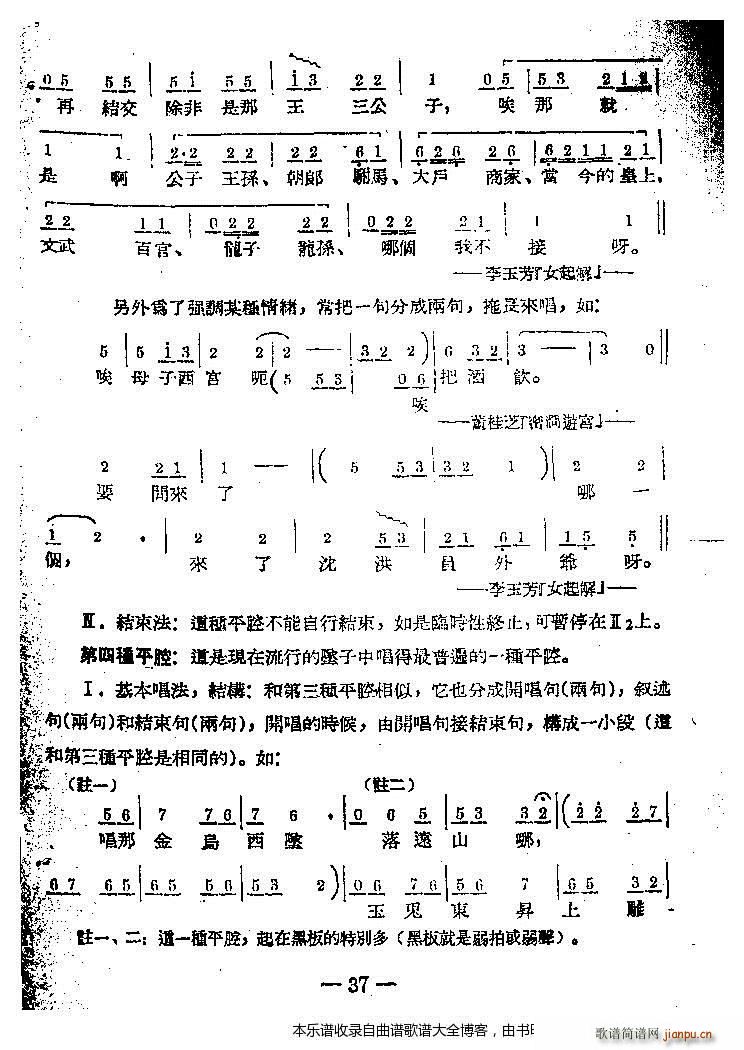 0 5 5 5 | 5 i 5 5 | i 3 2 2 | 1 0 5 | 5 3 2 1 2
再 結交 除非 是那 王 三公 子, 唉 那 就
1 1 | 2·2 2 2 2 2 6 1 | 6 2 6 2 6 | 6 2 1 1 2 1 |
是 啊 公子 王孫、朝郎 駙馬、大戶 商家、當 今的 皇上,
2 2 1 1 | 0 2 2 2 | 0 2 2 2 2 1 | 1 1 ‖
文武 百官、龍子 龍孫、哪個 我不 接 呀。
——李玉芳『女起解』——
另外爲了强調某種情緒,常把一句分成兩句,拖長來唱,如:
5 | 5 i 3 | 2 2 | 2 — | 3 2 2 ) | 6 3 2 | 3 — | 3 0 ‖
唉 母子 西宮 呃 ( 5 5 3 0 6 把 酒 飲。
唉
2 2 1 | 1 — | ( 5 5 3 | 3 2 1 ) | 2 2 |
要 問來 了 哪 一
1 2 · | 2 2 | 2 5 3 | 2 1 6 1 | 1 5 5 ‖
個, 來 了 沈 洪 員 外 爺 呀。
——李玉芳『女起解』——
Ⅱ. 結束法:這種平腔不能自行結束,如是臨時性終止,可暫停在Ⅱ2上。
第四種平腔:這是現在流行的墜子中唱得最普遍的一種平腔。
Ⅰ. 基本唱法,結構:和第三種平腔相似,它也分成開唱句(兩句),叙述
句(兩句)和結束句(兩句),開唱的時候,由開唱句接結束句,構成一小段(這
和第三種平腔是相同的)。如:
(註一) (註二)
5 6 | 7 7 6 | 6 · | 0 0 5 | 5 3 3 2 | ( 2 2 2 7 |
唱那 金 烏 西 墜 落 遠 山 哪,
6 7 6 5 | 6 5 5 6 | 5 3 2 ) | 0 6 7 6 | 5 6 7 | 6 5 3 2 |
玉 兎 東 昇 上 雕
註一、二:這一種平腔,起在黑板的特別多(黑板就是弱拍或弱聲)。
— 37 —
本乐谱收录自曲谱歌谱大全博客,由书
歌谱简谱网
jianpu.cn